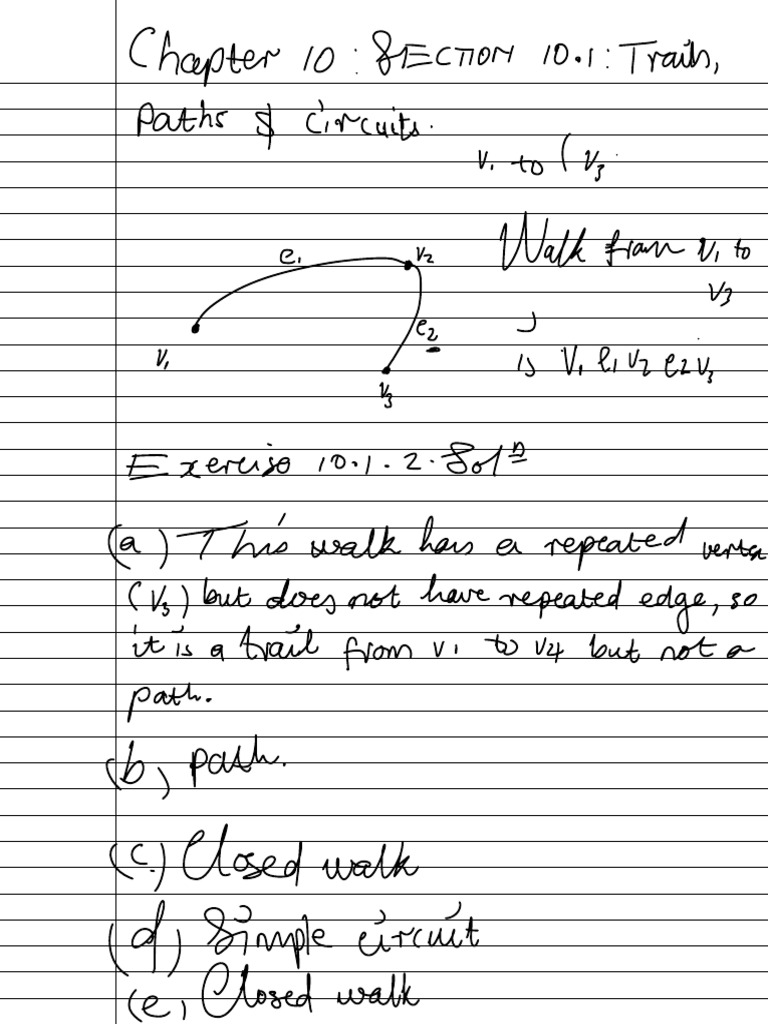 Chapter 10 : SECTION 10.1 : Trails,
Paths & circuits.
v1 to ( v3
e1
v2
Walk from v1 to
v3
e2
v1
is v1 e1 v2 e2 v3
v3
Exercise 10.1.2. Solⁿ
(a) This walk has a repeated vertex
(v3) but does not have repeated edge, so
it is a trail from v1 to v4 but not a
path.
(b) path.
(c.) Closed walk
(d) Simple circuit
(e) Closed walk